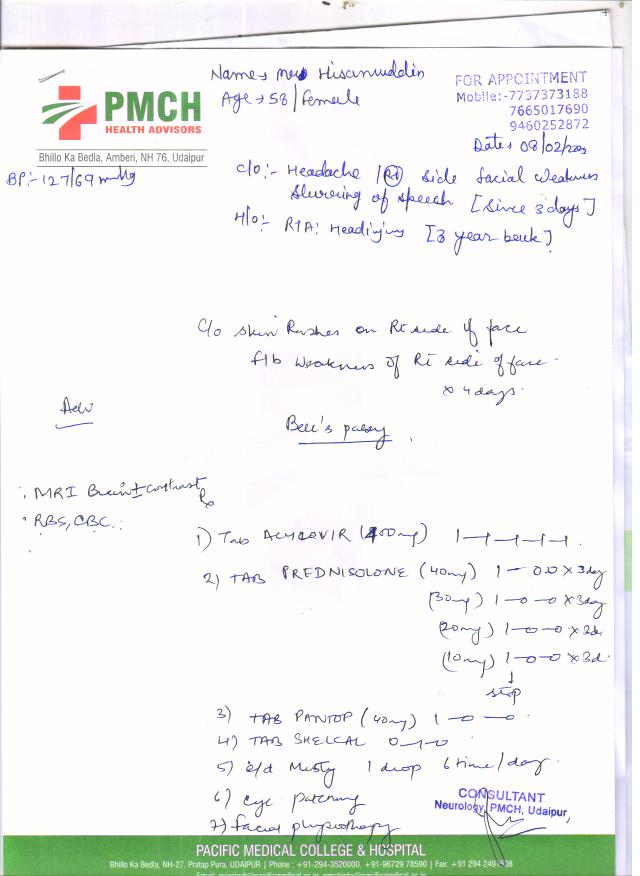 PMCH
HEALTH ADVISORS
Bhillo Ka Bedla, Amberi, NH 76, Udaipur
Name→ Mrs Hisamuddin
Age → 58/Female
FOR APPOINTMENT
Mobile:-7737373188
7665017690
9460252872
Date→ 08/02/
BP:- 127/69 mmHg
C/o:- Headache / Rt side facial weakness
Slurring of speech [Since 3 days]
H/o:- RTA: Head injury [3 year back]
C/o skin Rashes on Rt side of face
f/b weakness of Rt side of face
x 4 days.
Adv
Bell's palsy
MRI Brain ± contrast
RBS, CBC.
Rx
1) Tab ACYCLOVIR (400mg) 1-1-1-1-1
2) TAB PREDNISOLONE (40mg) 1-0-0 x 3day
(30mg) 1-0-0 x 3day
(20mg) 1-0-0 x 3d
(10mg) 1-0-0 x 3d
↓
stop
3) TAB PANTOP (40mg) 1-0-0
4) TAB SHELCAL 0-1-0
5) e/d Misty 1 drop 6 time/day
6) eye patching
7) facial physiotherapy
CONSULTANT
Neurology, PMCH, Udaipur,
PACIFIC MEDICAL COLLEGE & HOSPITAL
Bhillo Ka Bedla, NH-27, Pratap Pura, UDAIPUR | Phone : +91-294-3520000, +91-96729 78590 | Fax: +91 294 249